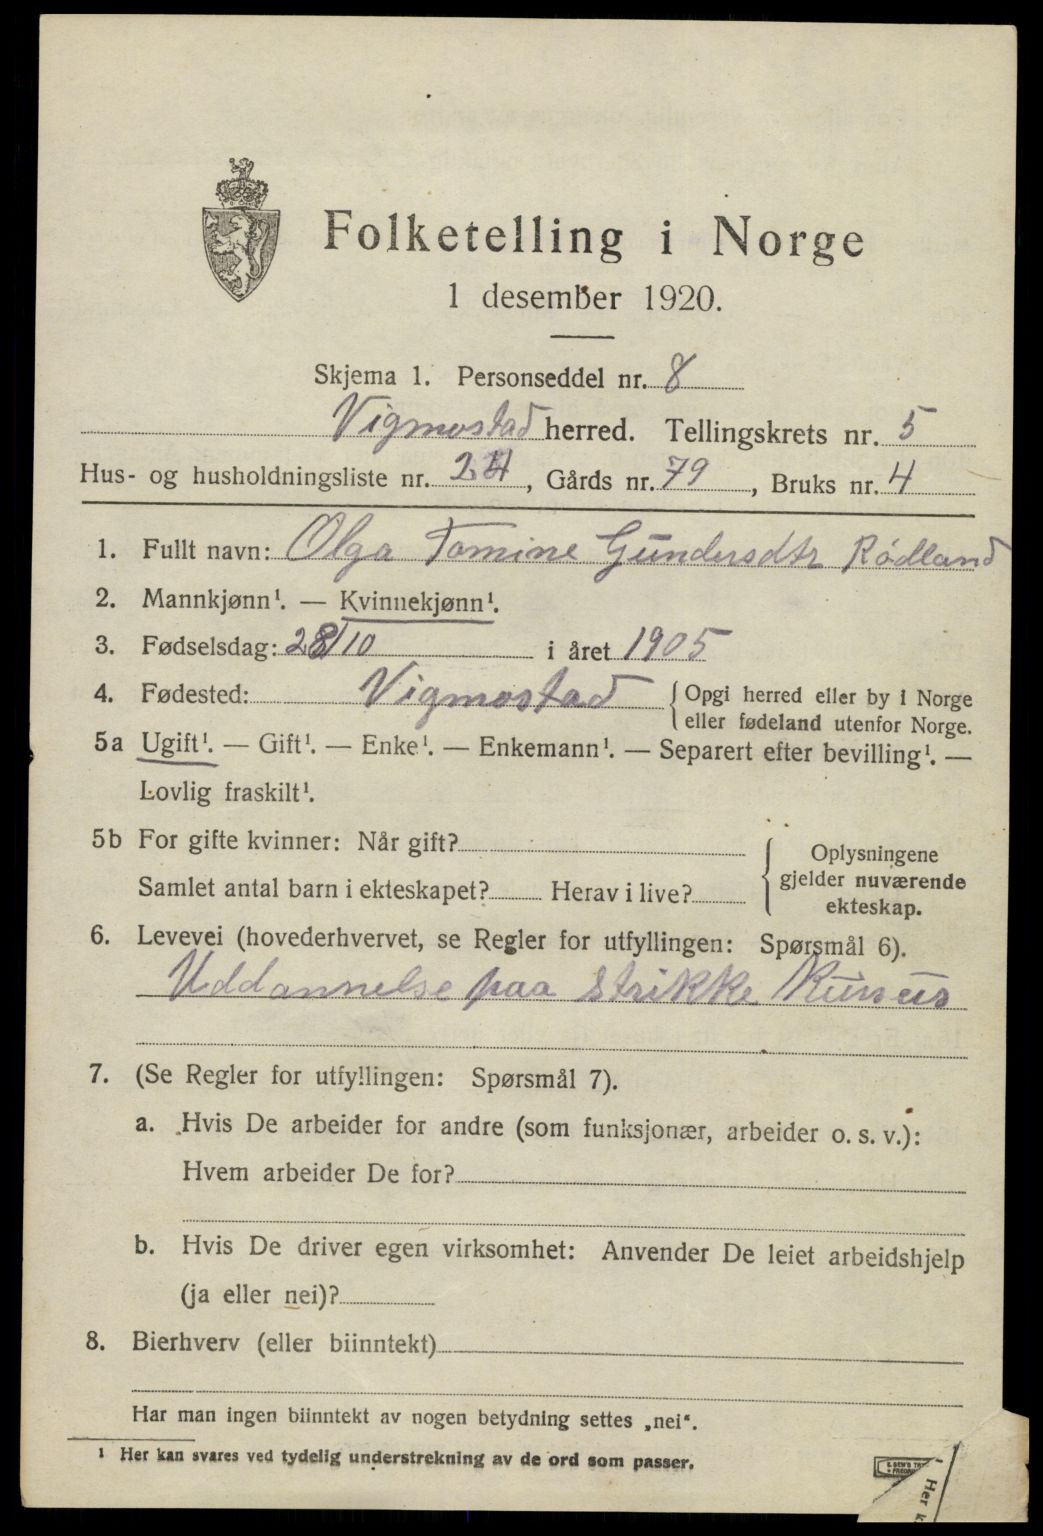 Folketelling i Norge
1 desember 1920.
Skjema 1. Personseddel nr. 8
Vigmostad herred. Tellingskrets nr. 5
Hus- og husholdningsliste nr. 24, Gårds nr. 79, Bruks nr. 4
1. Fullt navn: Olga Tomine Gundersdtr Rødland
2. Mannkjønn¹. — Kvinnekjønn¹.
3. Fødselsdag: 28/10 i året 1905
4. Fødested: Vigmostad {Opgi herred eller by i Norge
eller fødeland utenfor Norge.
5a Ugift¹. — Gift¹. — Enke¹. — Enkemann¹. — Separert efter bevilling¹. —
Lovlig fraskilt¹.
5b For gifte kvinner: Når gift?
Samlet antal barn i ekteskapet? Herav i live?
Oplysningene
gjelder nuværende
ekteskap.
6. Levevei (hovederhvervet, se Regler for utfyllingen: Spørsmål 6).
Uddannelse paa strikke Kursus
7. (Se Regler for utfyllingen: Spørsmål 7).
a. Hvis De arbeider for andre (som funksjonær, arbeider o. s. v.):
Hvem arbeider De for?
b. Hvis De driver egen virksomhet: Anvender De leiet arbeidshjelp
(ja eller nei)?
8. Bierhverv (eller biinntekt)
Har man ingen biinntekt av nogen betydning settes „nei“.
¹ Her kan svares ved tydelig understrekning av de ord som passer.
¹ Her